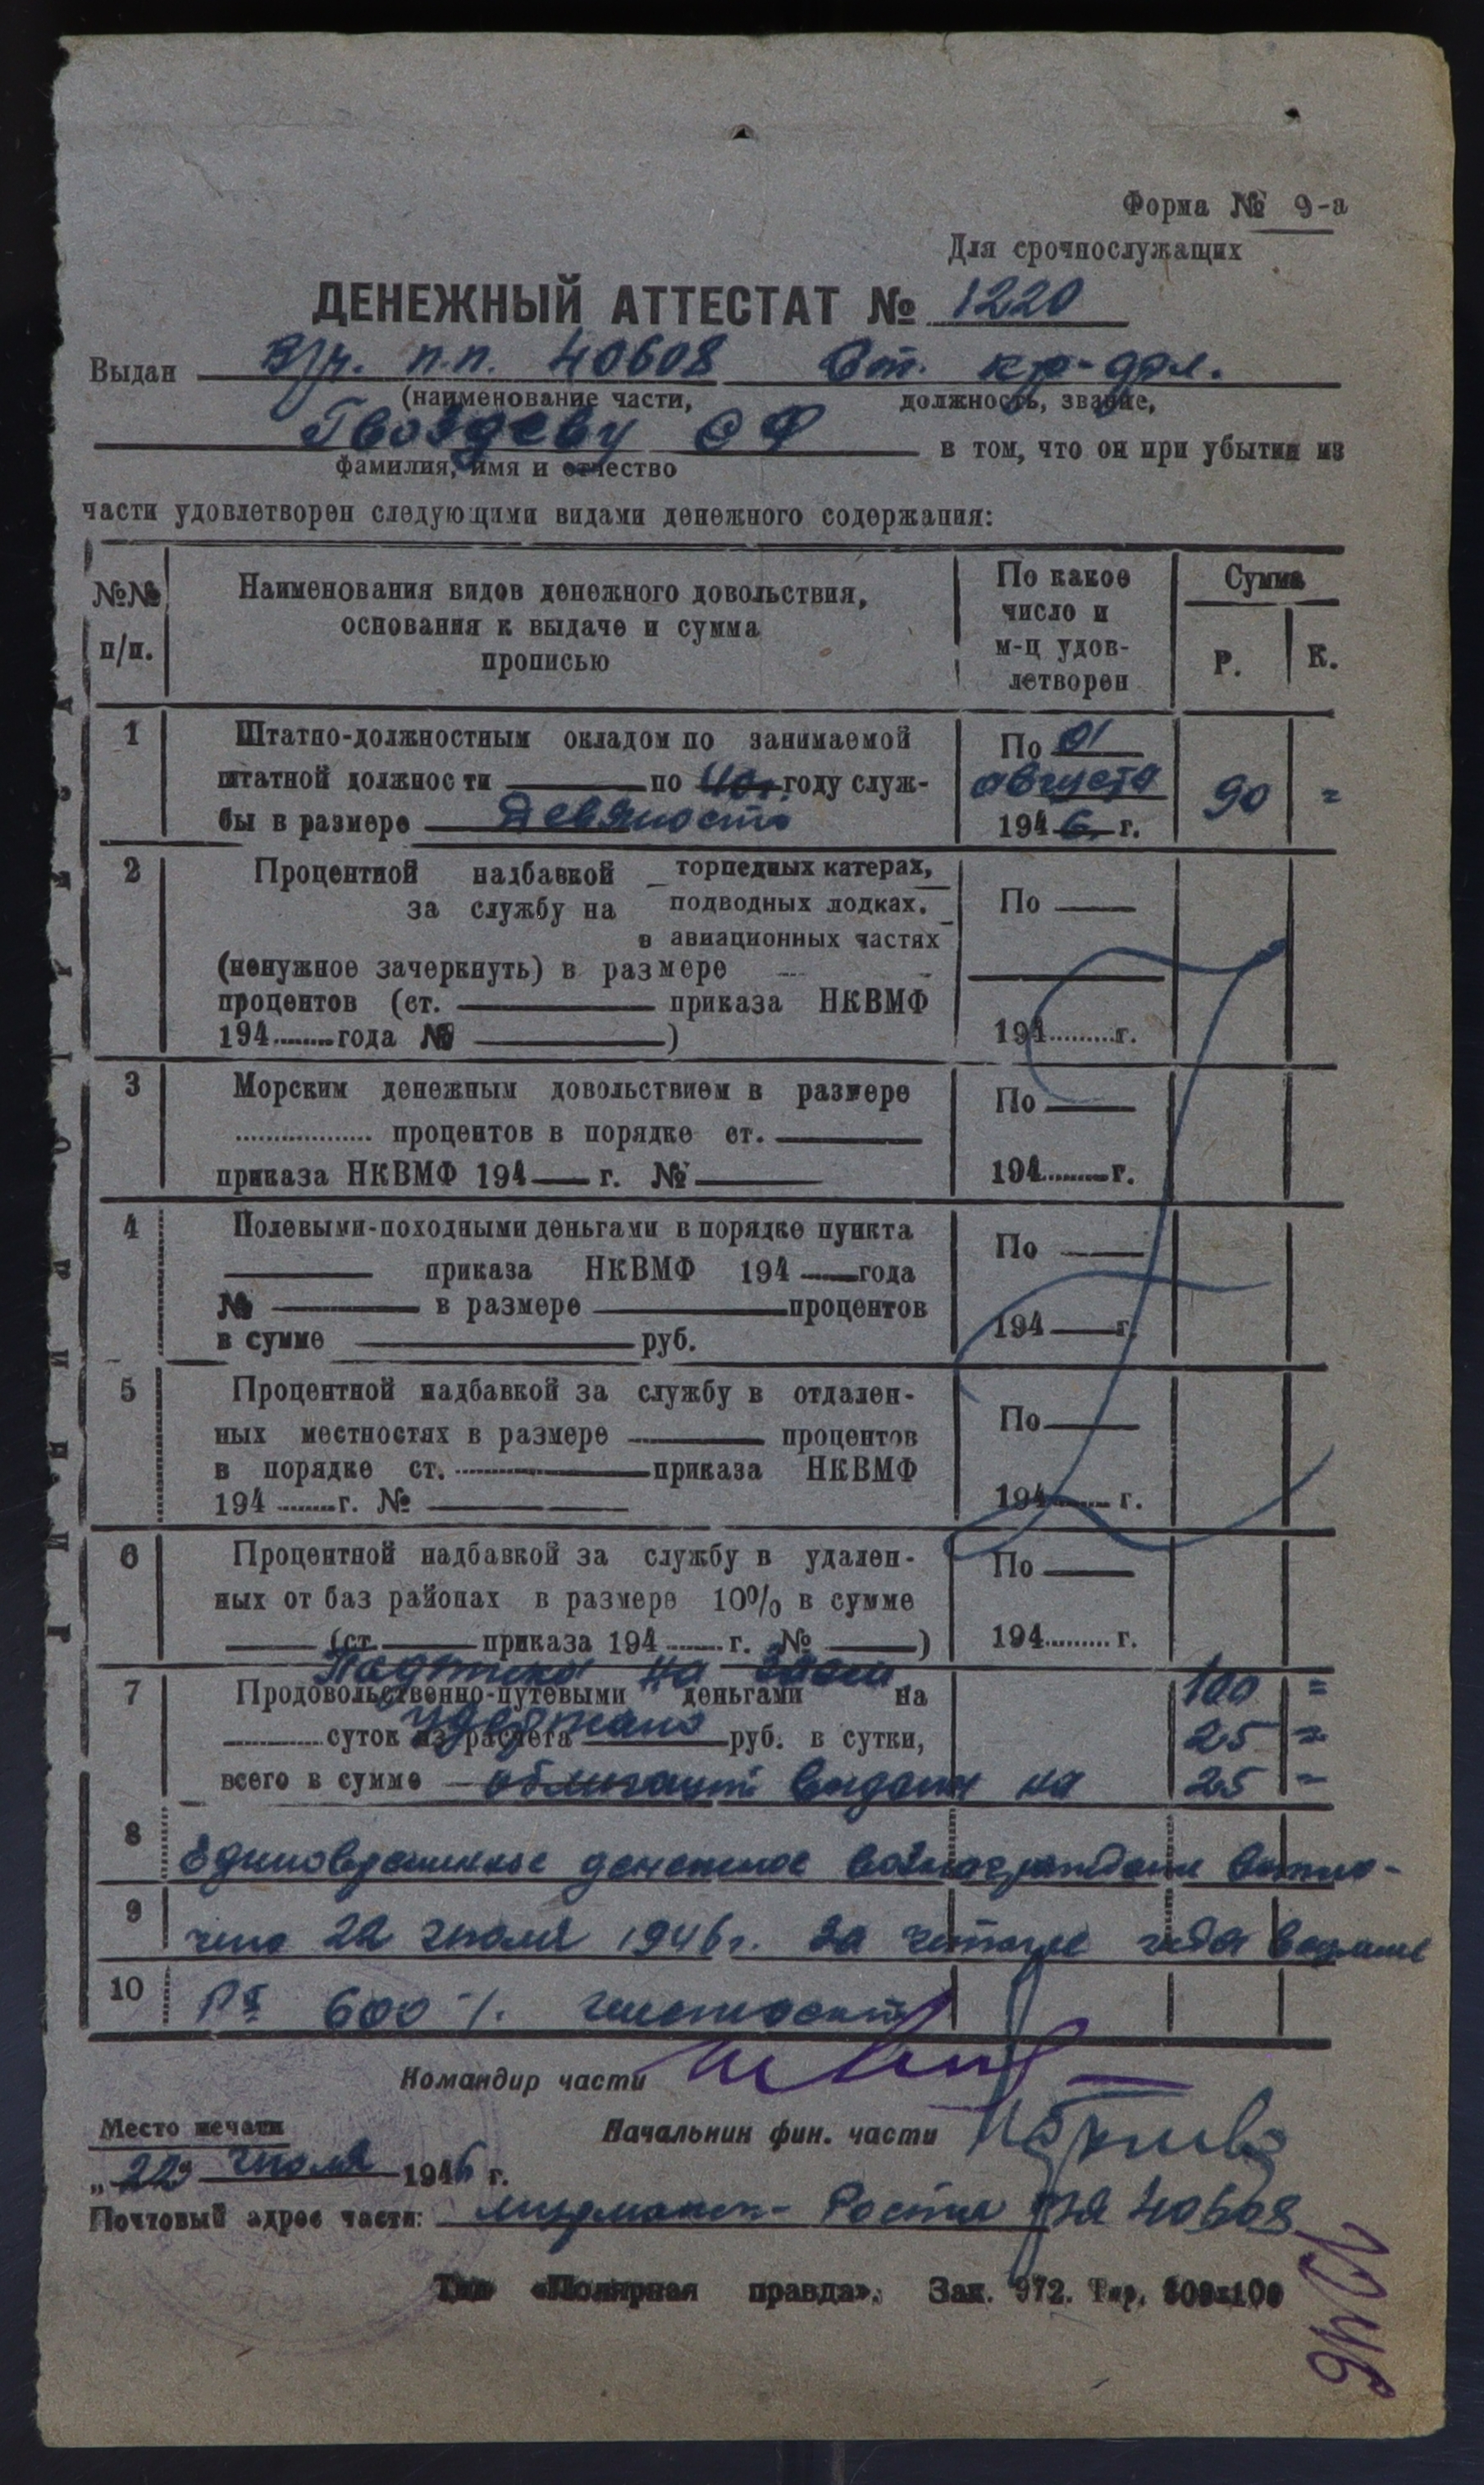 Форма № 9-а
Для срочнослужащих
ДЕНЕЖНЫЙ АТТЕСТАТ № 1220
Выдан В/ч. п.п. 40608 Ст. кр-фл.
(наименование части, должность, звание,
Гвоздеву С Ф в том, что он при убытии из
фамилия, имя и отчество
части удовлетворен следующими видами денежного содержания:
№№ п/п.
Наименования видов денежного довольствия,
основания к выдаче и сумма
прописью
По какое
число и
м-ц удов-
летворен
Сумма
Р. К.
1 Штатно-должностным окладом по занимаемой
штатной должности по 4ог. году служ-
бы в размере Девяносто
По 01
августа
1946 г.
90 =
2 Процентной надбавкой торпедных катерах,
за службу на подводных лодках.
в авиационных частях
(ненужное зачеркнуть) в размере
процентов (ст. приказа НКВМФ
194 года № )
По
194 г.
3 Морским денежным довольствием в размере
процентов в порядке ст.
приказа НКВМФ 194 г. №
По
194 г.
4 Полевыми-походными деньгами в порядке пункта
приказа НКВМФ 194 года
№ в размере процентов
в сумме руб.
По
194 г.
5 Процентной надбавкой за службу в отдален-
ных местностях в размере процентов
в порядке ст. приказа НКВМФ
194 г. №
По
194 г.
6 Процентной надбавкой за службу в удален-
ных от баз районах в размере 10% в сумме
(ст. приказа 194 г. № )
По
194 г.
Подписка на заем 100 =
7 Продовольственно-путевыми деньгами на
удержано 25 =
суток из расчета руб. в сутки,
всего в сумме облигаций выдано на 25 =
8 Единовременное денежное вознаграждение выпла-
9 чено 22 июля 1946 г. за четыре года
10 600
Командир части
Место печати
Начальник фин. части
„22" июля 1946 г.
Почтовый адрес части: Мурманск- Роста 40608
Тип «Полярная правда». Зак. 972. Тир. 500х100